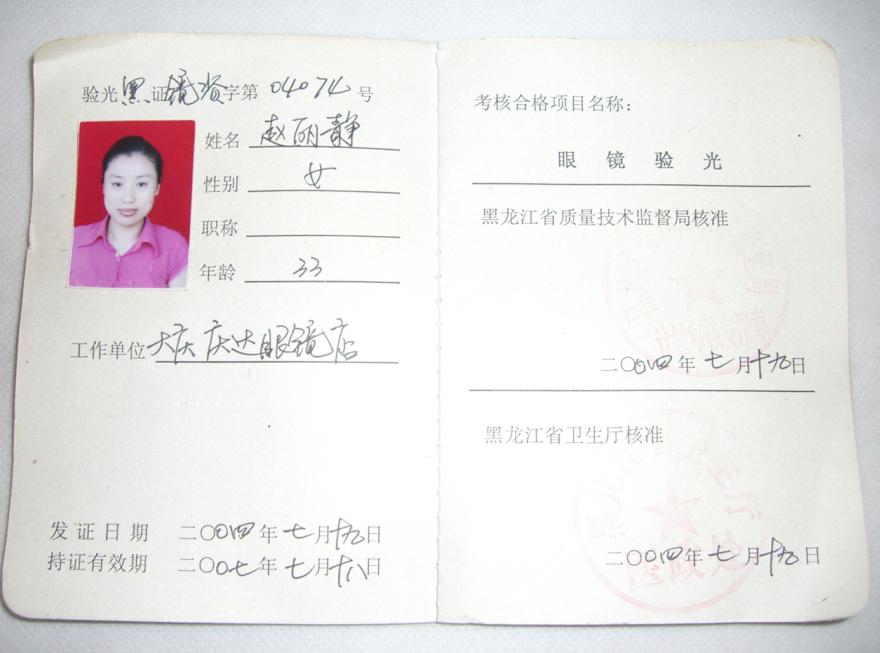 验光黑证镜资字第 04074 号
姓名 赵丽静
性别 女
职称
年龄 33
工作单位 大庆庆达眼镜店
发证日期 二〇〇四年七月十九日
持证有效期 二〇〇七年七月十八日
考核合格项目名称：
眼镜验光
黑龙江省质量技术监督局核准
二〇〇四年七月十九日
黑龙江省卫生厅核准
二〇〇四年七月十九日
黑龙江省卫生厅
医政处